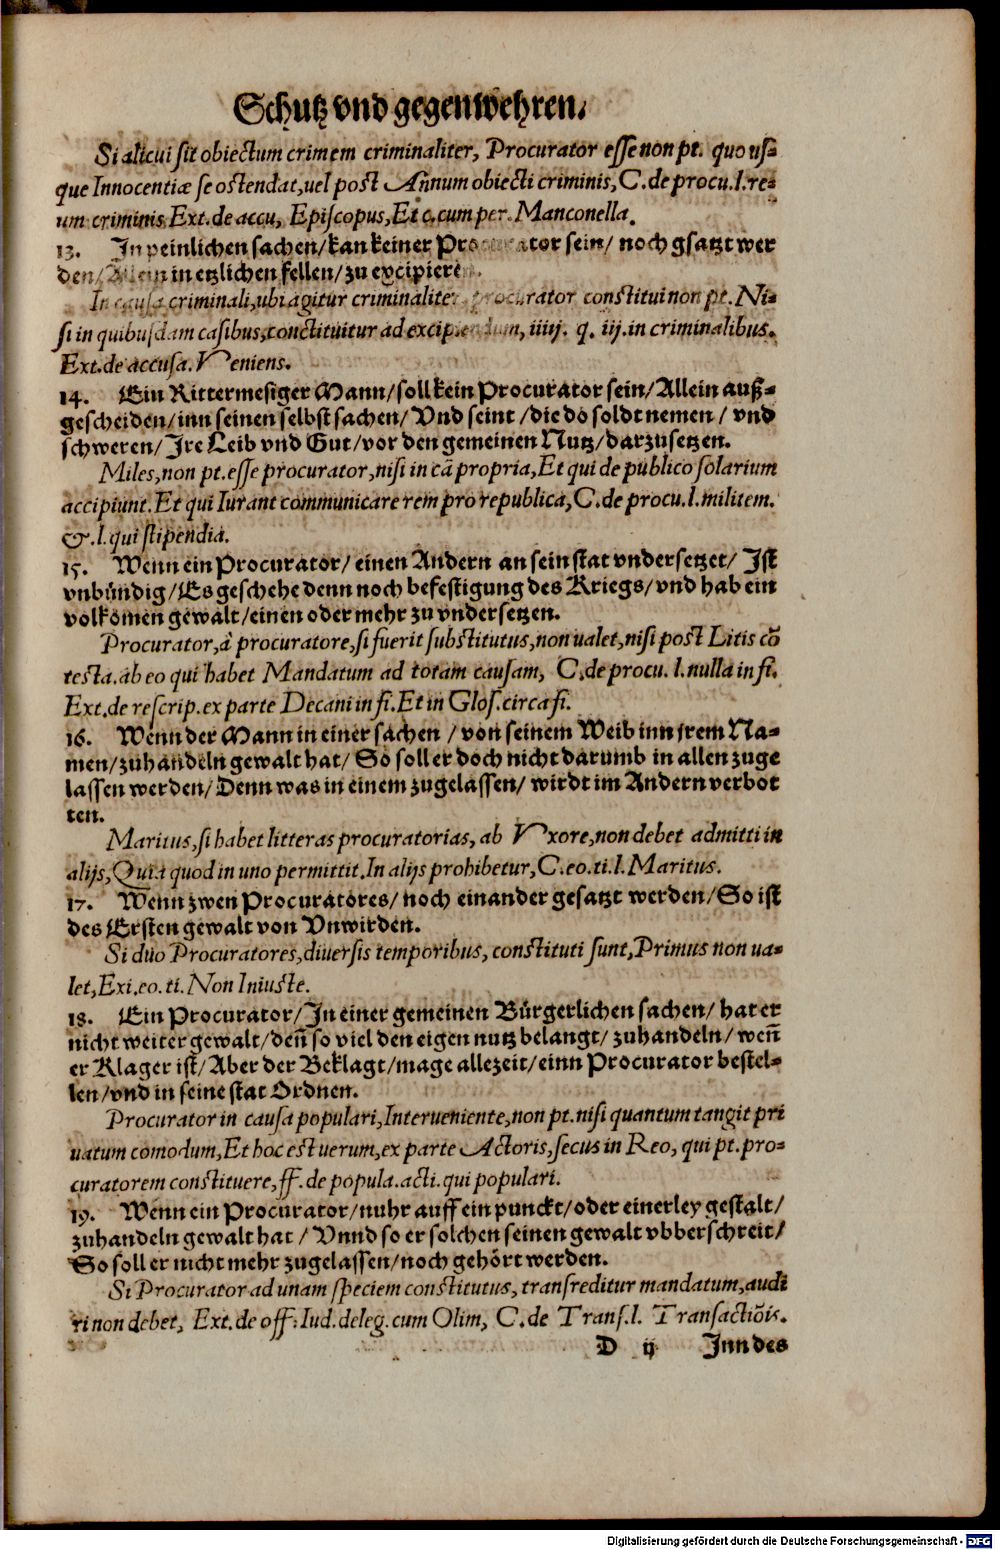 Schutz vnd gegenwehren.
Si alicui sit obiectum crimem criminaliter, Procurator esse non pt. quo usꝗ
que Innocentiæ se ostendat, uel post Annum obiecti criminis, C. de procu. l. re-
um criminis Ext. de accu, Episcopus, Et c. cum per. Manconella.
13. In peinlichen sachen/ kan keiner Procurator sein/ noch gsatzt wer
den/ Allein in etzlichen fellen/ zu excipieren.
In causa criminali, ubi agitur criminaliter procurator constitui non pt. Ni-
si in quibusdam casibus, constituitur ad excipiendum, iiij. q. iij. in criminalibus.
Ext. de accusa. Veniens.
14. Ein Rittermesiger Mann/ soll kein Procurator sein/ Allein auß-
gescheiden/ inn seinen selbst sachen/ Vnd seint / die do soldt nemen / vnd
schweren/ Jre Leib vnd Gut/ vor den gemeinen Nutz/ darzusetzen.
Miles, non pt. esse procurator, nisi in cā propria, Et qui de publico solarium
accipiunt. Et qui Iurant communicare rem pro republica, C. de procu. l. militem.
& .l. qui stipendia.
15. Wenn ein Procurator/ einen Andern an sein stat vndersetzet/ Jst
vnbündig/ Es geschehe denn noch befestigung des Kriegs/ vnd hab ein
volkōmen gewalt/ einen oder mehr zu vndersetzen.
Procurator, à procuratore, si fuerit substitutus, non ualet, nisi post Litis cō
testa. ab eo qui habet Mandatum ad totam causam, C. de procu. l. nulla in fi.
Ext. de rescrip. ex parte Decani in fi. Et in Glos. circa fi.
16. Wenn der Mann in einer sachen / von seinem Weib inn jrem Na-
men/ zuhandeln gewalt hat/ So soll er doch nicht darumb in allen zuge
lassen werden/ Denn was in einem zugelassen/ wirdt im Andern verbot
ten.
Maritus, si habet litteras procuratorias, ab Vxore, non debet admitti in
alijs, Quia quod in uno permittit. In alijs prohibetur, C. eo. ti. l. Maritus.
17. Wenn zwen Procuratores/ noch einander gesatzt werden/ So ist
des Ersten gewalt von Vnwirden.
Si duo Procuratores, diuersis temporibus, constituti sunt, Primus non ua-
let, Exi. eo. ti. Non Iniuste.
18. Ein Procurator/ Jn einer gemeinen Bürgerlichen sachen/ hat er
nicht weiter gewalt/ deñ so viel den eigen nutz belangt/ zuhandeln/ weñ
er Klager ist/ Aber der Beklagt/ mage allezeit/ einn Procurator bestel-
len/ vnd in seine stat Ordnen.
Procurator in causa populari, Interueniente, non pt. nisi quantum tangit pri
uatum comodum, Et hoc est uerum, ex parte Actoris, secus in Reo, qui pt. pro-
curatorem constituere, ff. de popula. acti. qui populari.
19. Wenn ein Procurator/ nuhr auff ein punckt/ oder einerley gestalt/
zuhandeln gewalt hat / Vnnd so er solchen seinen gewalt vbberschreit/
So soll er nicht mehr zugelassen/ noch gehört werden.
Si Procurator ad unam speciem constitutus, transreditur mandatum, audi
ri non debet, Ext. de off. Iud. deleg. cum Olim, C. de Trans. l. Transactiōis.
D ij Jnn des
Digitalisierung gefördert durch die Deutsche Forschungsgemeinschaft - DFG